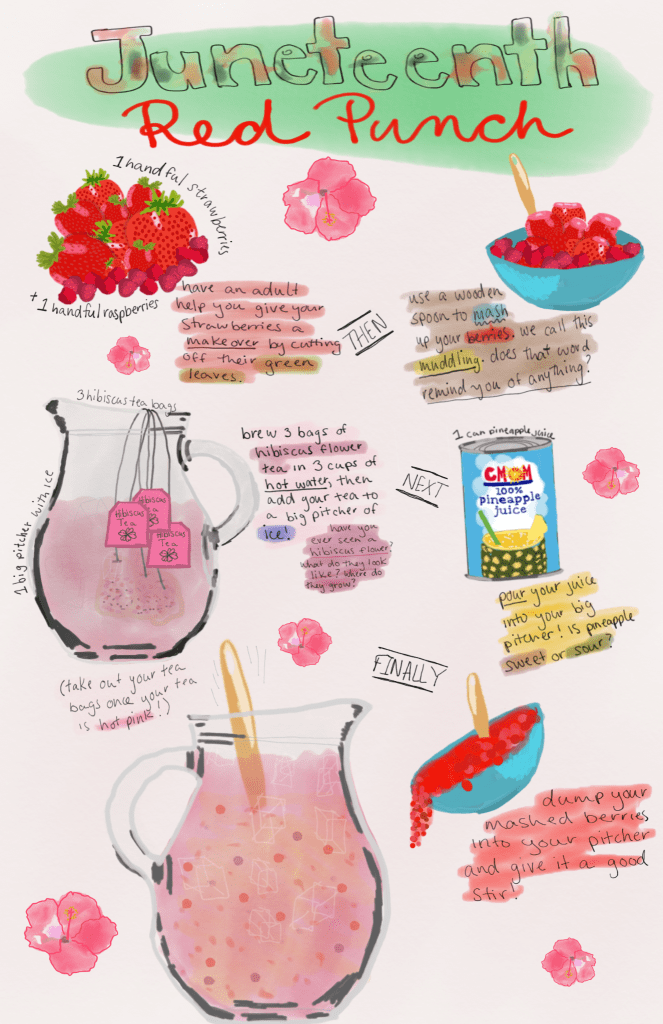 Juneteenth
Red Punch
1 handful strawberries
+ 1 handful raspberries
have an adult
help you give your
strawberries a
makeover by cutting
off their green
leaves.
THEN
use a wooden
spoon to mash
up your berries. we call this
muddling. does that word
remind you of anything?
3 hibiscus tea bags
1 big pitcher with ice
Hibiscus
Tea
Hibiscus
Tea
Hibiscus
Tea
brew 3 bags of
hibiscus flower
tea in 3 cups of
hot water, then
add your tea to
a big pitcher of
ice!
have you
ever seen a
hibiscus flower?
what do they look
like? where do
they grow?
NEXT
1 can pineapple juice
CMOM
100%
pineapple
juice
pour your juice
into your big
pitcher! Is pineapple
sweet or sour?
(take out your tea
bags once your tea
is hot pink!)
FINALLY
dump your
mashed berries
into your pitcher
and give it a good
stir!